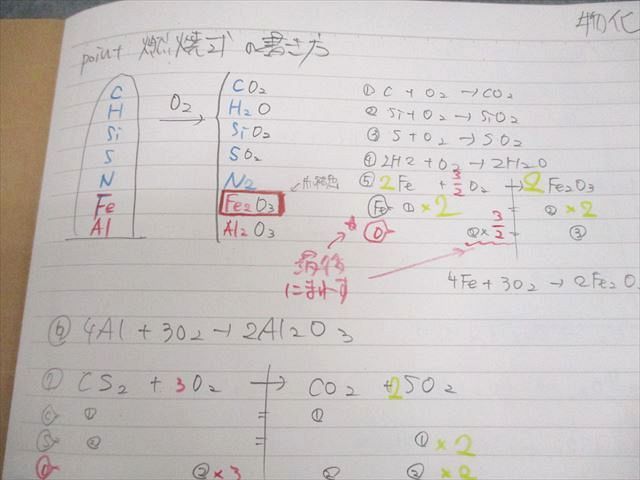 物化
point 燃焼式の書き方
C
H
Si
S
N
Fe
Al
O₂ →
CO₂
H₂O
SiO₂
SO₂
N₂
Fe₂O₃
Al₂O₃
① C + O₂ → CO₂
② Si + O₂ → SiO₂
③ S + O₂ → SO₂
④ 2H2 + O₂ → 2H₂O
⑤ 2Fe + 3/2 O₂ → 2Fe₂O₃
Fe ① ×2 = ② ×2
O ② × 3/2 = ③
最後
にまわす
4Fe + 3O₂ → 2Fe₂O
⑥ 4Al + 3O₂ → 2Al₂O₃
⑦ CS₂ + 3O₂ → CO₂ + 2SO₂
C ① = ①
S ② = ① ×2
O ② ×3 ② ② ×2